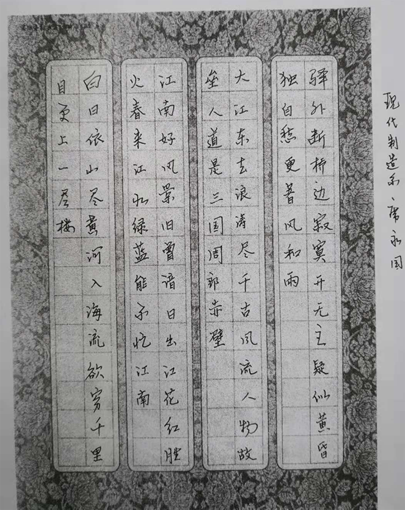 现代制造系永国
驿外断桥边寂寞开无主疑似黄昏
独自愁更著风和雨
大江东去浪涛尽千古风流人物故
垒人道是三国周郎赤壁
江南好风景旧曾谙日出江花红胜
火春来江水绿蓝能不忆江南
白日依山尽黄河入海流欲穷千里
目更上一层楼